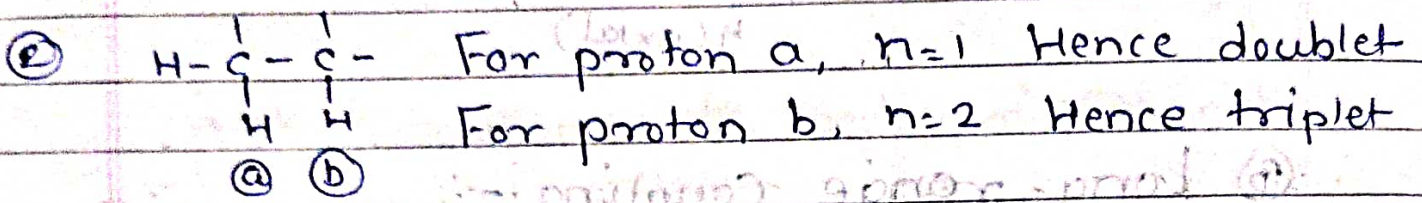 (e) H-C-C- For proton a, n=1 Hence doublet
H H For proton b, n=2 Hence triplet
(a) (b)